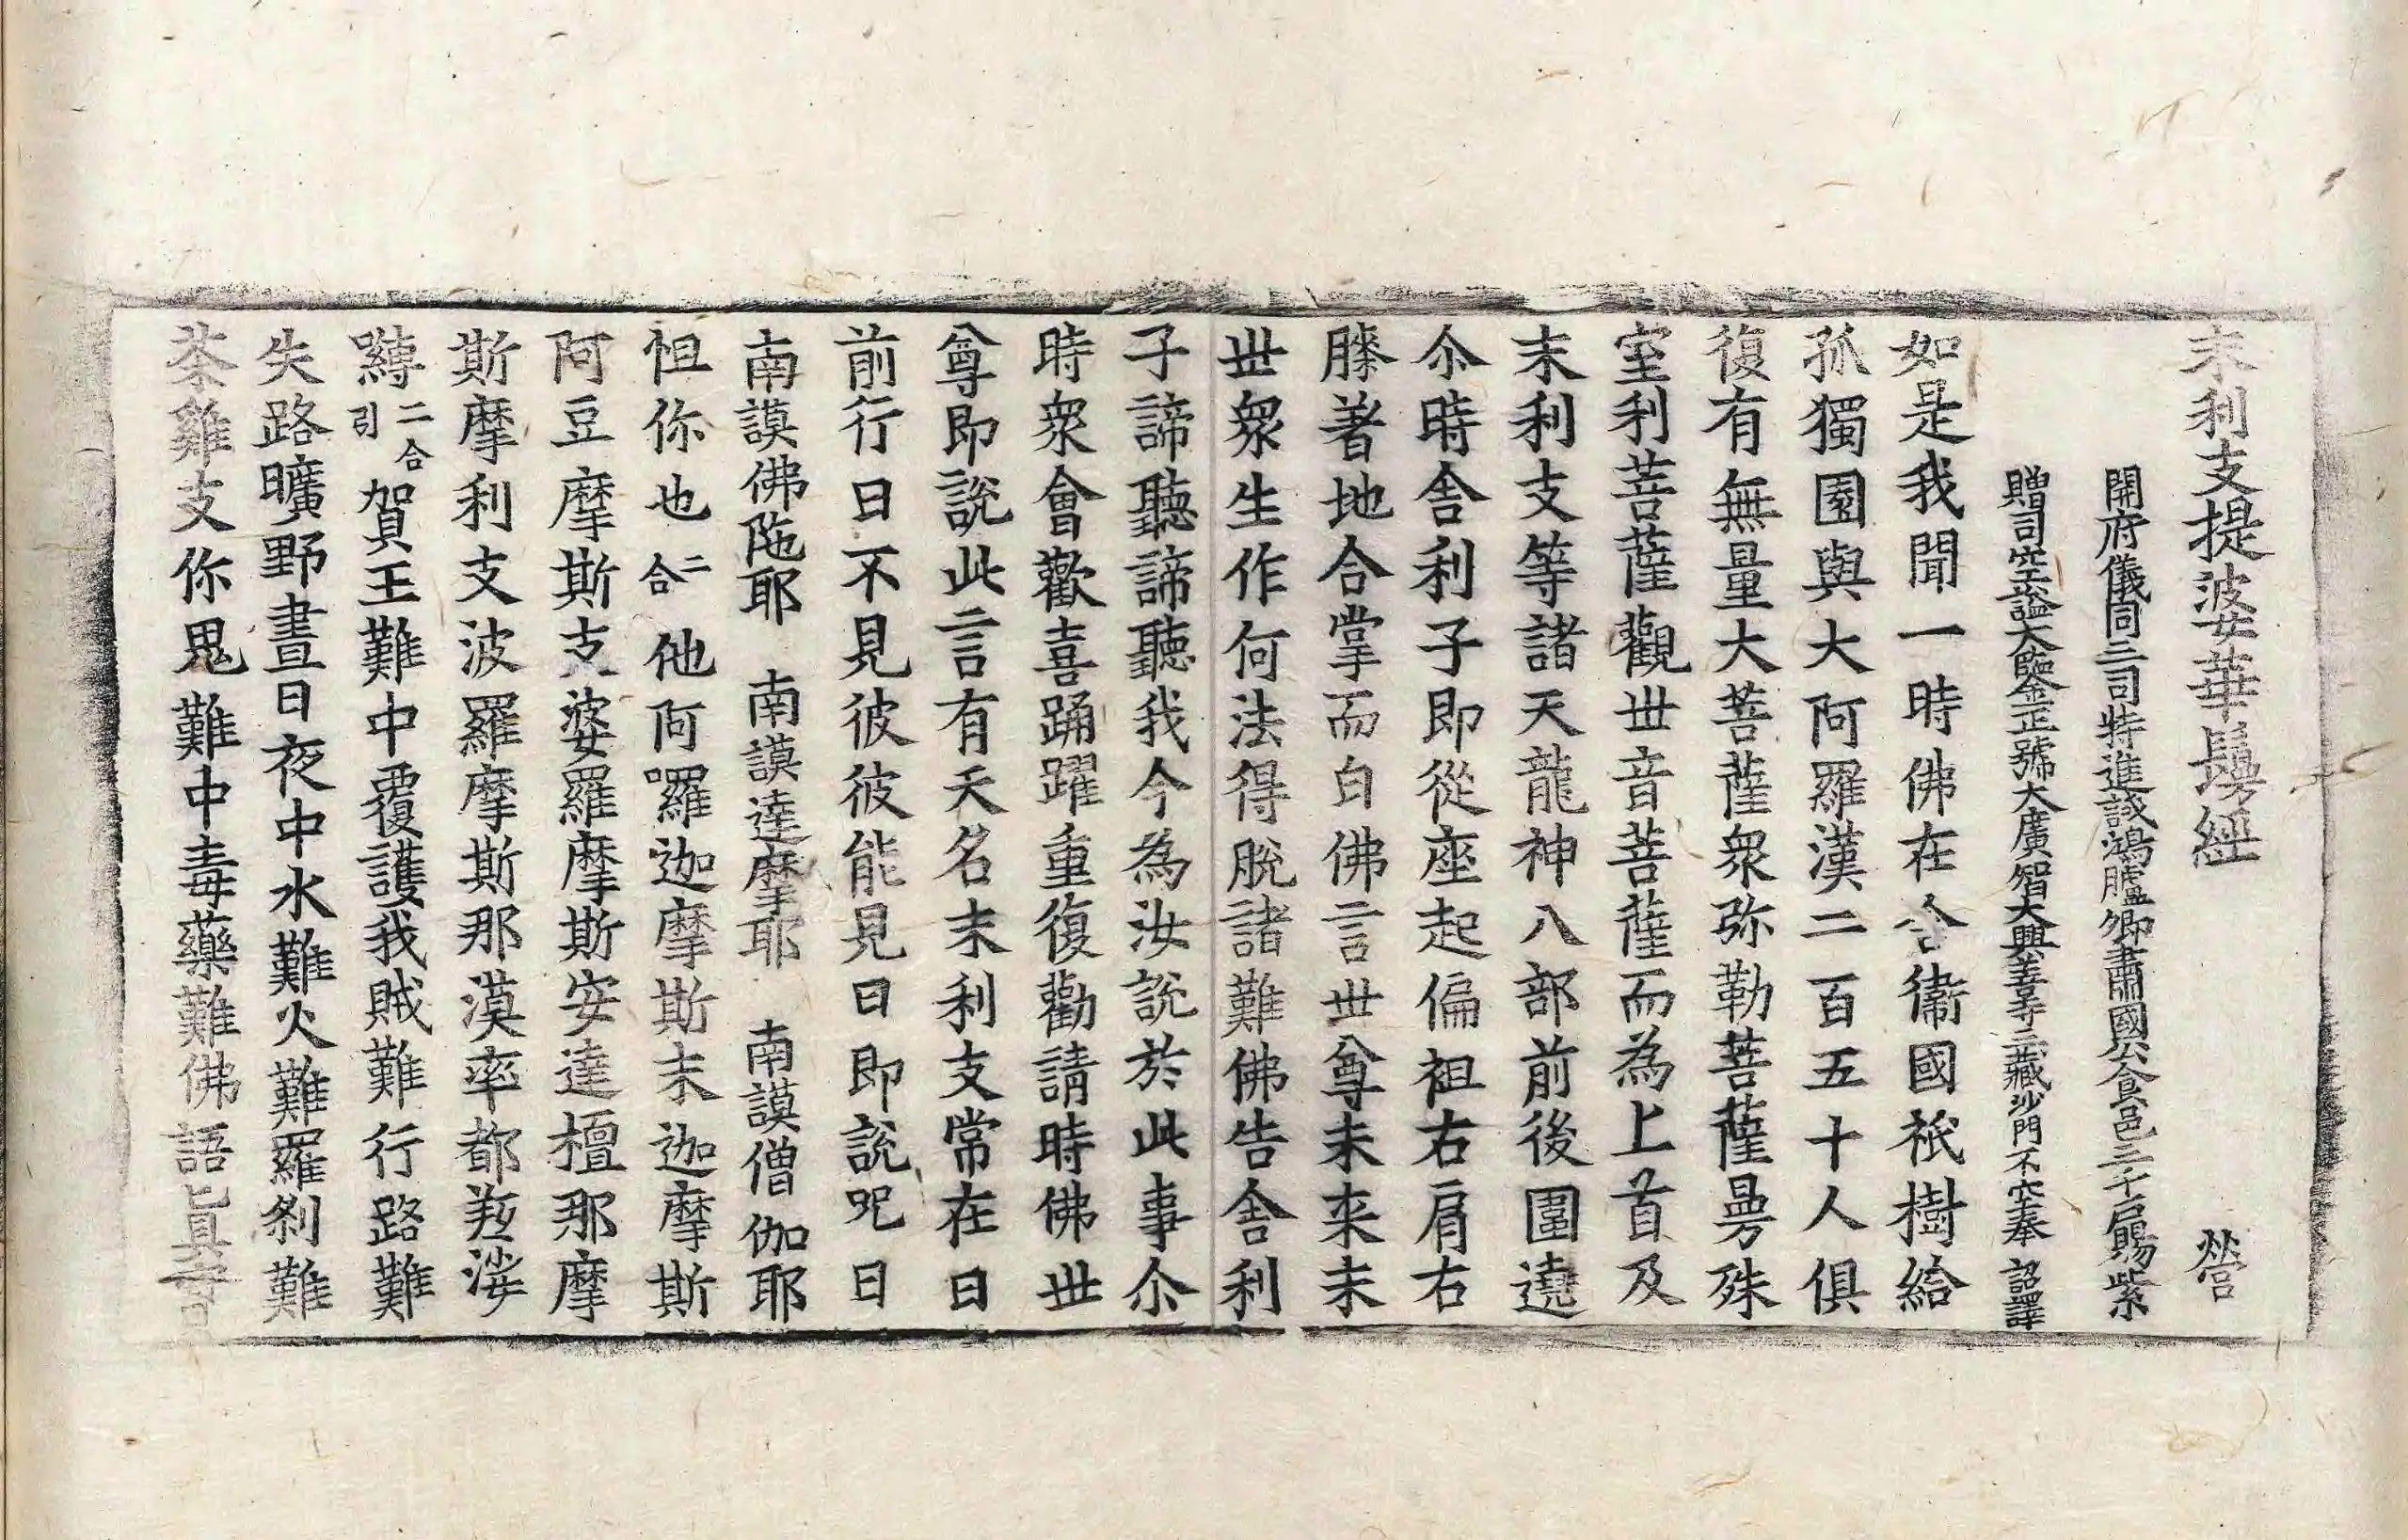 末利支提婆華鬘經　營
開府儀同三司特進試鴻臚卿肅國公食邑三千戶賜紫
贈司空謚大鑒正號大廣智大興善寺三藏沙門不空奉　詔譯
如是我聞一時佛在舍衞國祇樹給
孤獨園與大阿羅漢二百五十人俱
復有無量大菩薩衆弥勒菩薩曼殊
室利菩薩觀世音菩薩而為上首及
末利支等諸天龍神八部前後圍遶
尒時舍利子即從座起偏袒右肩右
膝著地合掌而白佛言世尊未来末
世衆生作何法得脫諸難佛告舍利
子諦聽諦聽我今為汝說於此事尒
時衆會歡喜踊躍重復勸請時佛世
尊即說此言有天名末利支常在日
前行日不見彼彼能見日即說呪曰
南謨佛陁耶　南謨達摩耶　南謨僧伽耶
怛你也二合他阿囉迦摩斯末迦摩斯
阿豆摩斯支婆羅摩斯安達檀那摩
斯摩利支波羅摩斯那漠率都羝娑
嚩二合引賀王難中覆護我賊難行路難
失路曠野晝日夜中水難火難羅刹難
荼雞支你鬼難中毒藥難佛語真言